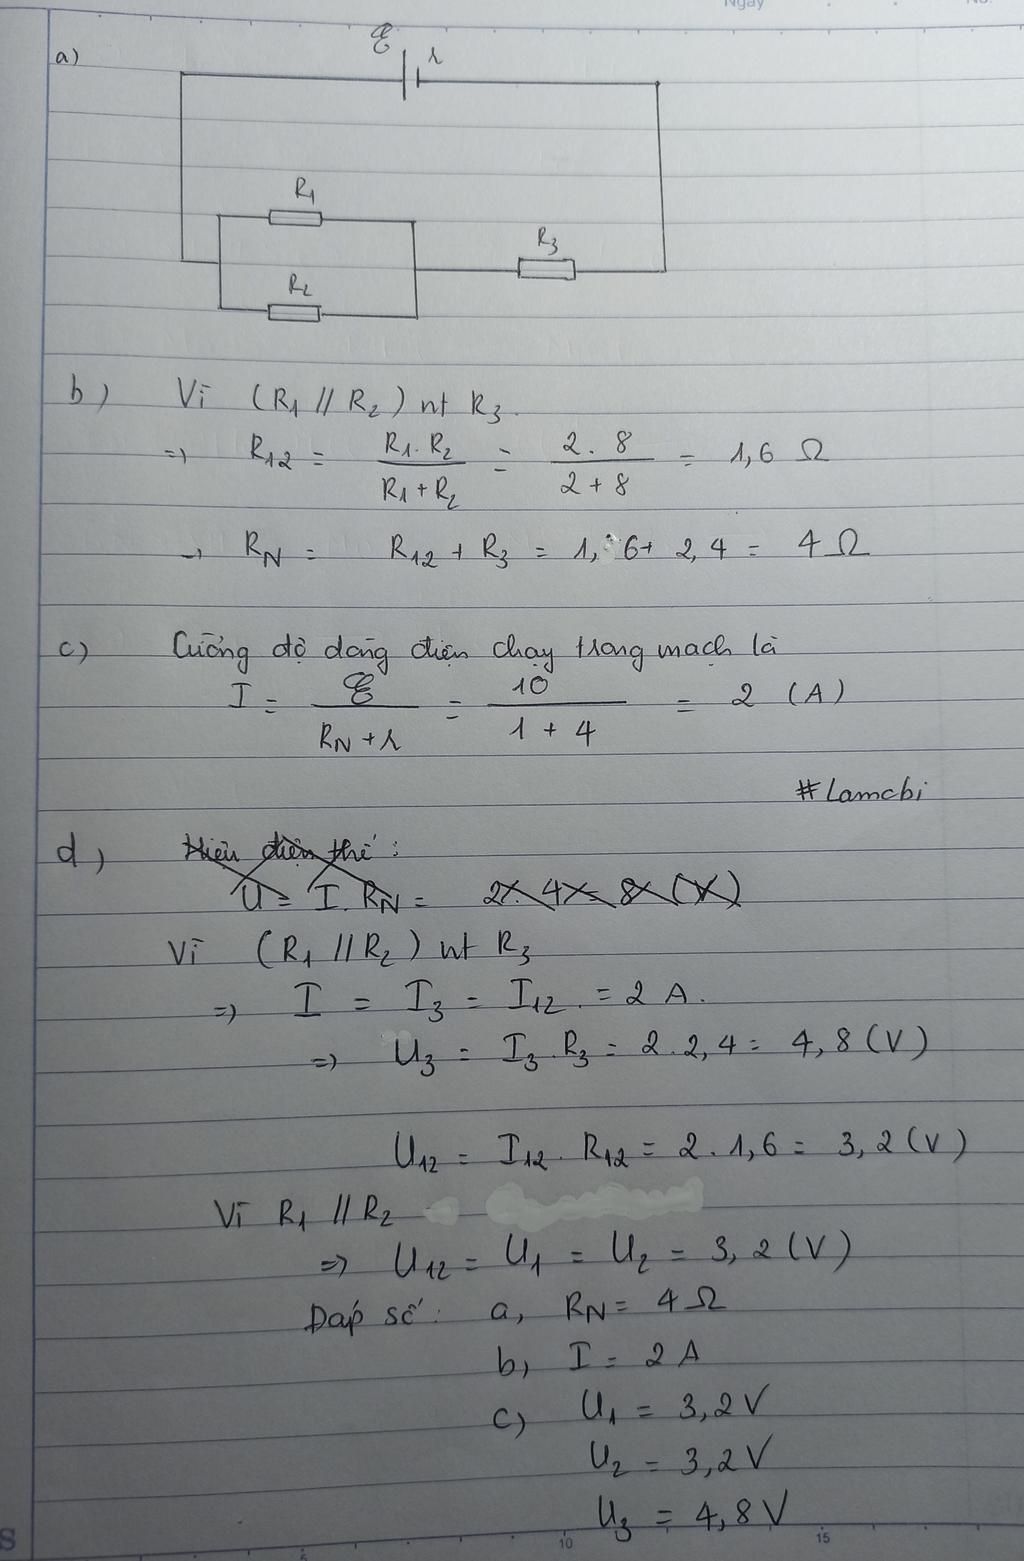 Ngày No.
a)
ℰ r
R1
R3
R2
b) Vì (R1 // R2) nt R3.
=> R12 = R1.R2 / R1+R2 = 2.8 / 2+8 = 1,6 Ω
→ RN = R12 + R3 = 1,6+ 2,4 = 4 Ω
c) Cường độ dòng điện chạy trong mạch là
I = ℰ / RN + r = 10 / 1 + 4 = 2 (A)
#Lamcbi
d) Hiệu điện thế :
U = I.RN = 2.4 = 8 (V)
Vì (R1 // R2) nt R3
=> I = I3 = I12 = 2 A.
=> U3 = I3.R3 = 2.2,4 = 4,8 (V)
U12 = I12.R12 = 2.1,6 = 3,2 (V)
Vì R1 // R2
=> U12 = U1 = U2 = 3,2 (V)
Đáp số : a, RN = 4 Ω
b) I = 2 A
c) U1 = 3,2 V
U2 = 3,2 V
U3 = 4,8 V
S 5 10 15